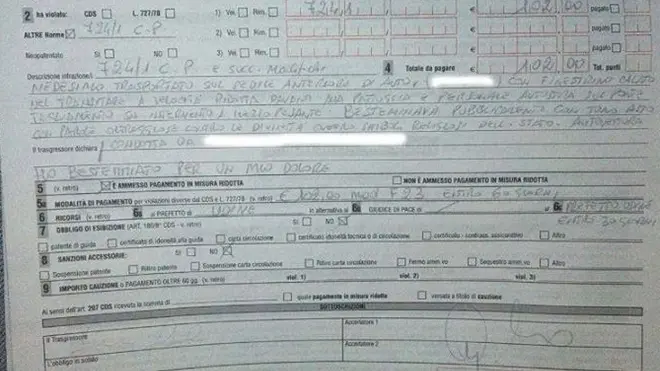 2 ha violato: CDS L. 727/78 1) Vei. Rim. 724,1 € 102,00 pagato
ALTRE Norme 724/1 C.P. 2) Vei. Rim. € pagato
Neopatentato SI NO 3) Vei. Rim. € pagato
724/1 C.P. E SUCC. MODIFICHE 4 Totale da pagare € 102,00 Tot. punti
Descrizione infrazione/i
MEDESIMO TRASPORTATO SUL SEDILE ANTERIORE DI AUTO, CON FINESTRINO CALATO
NEL TRANSITARE A VELOCITÀ RIDOTTA DAVANTI ALLA PATTUGLIA E PERSONALE SUL PONTE
TAGLIAMENTO BESTEMMIAVA PUBBLICAMENTE CON TONO ALTO
CON PAROLE OLTRAGGIOSE CONTRO LA DIVINITÀ RELIGIOSI DELL. STATO. AUTOVETTURA
Il trasgressore dichiara CONDOTTA DA
HO BESTEMMIATO PER UN MIO DOLORE
5 (v. retro) È AMMESSO PAGAMENTO IN MISURA RIDOTTA NON È AMMESSO PAGAMENTO IN MISURA RIDOTTA (v. retro)
5a MODALITÀ DI PAGAMENTO per violazioni diverse dal CDS e L. 727/78 (v. retro) € 102,00 MOD F23 ENTRO 60 GIORNI
6 RICORSI (v. retro) 6a al PREFETTO di UDINE in alternativa al 6b GIUDICE DI PACE di 6c PREFETTO UDINE
ENTRO 30 GIORNI
7 OBBLIGO DI ESIBIZIONE (ART. 180/8° CDS - v. retro) SI NO
patente di guida certificato di idoneità alla guida carta circolazione certificato idoneità tecnica o di circolazione certificato - contrass. assicurativo Altro
8 SANZIONI ACCESSORIE: SI NO
Sospensione patente Ritiro patente Sospensione carta circolazione Ritiro carta circolazione Fermo amm.vo Sequestro amm.vo Altro
9 IMPORTO CAUZIONE o PAGAMENTO OLTRE 60 gg. (v. retro) viol. 1) viol. 2) viol. 3)
Ai sensi dell'art. 207 CDS ricevuta la somma di quale pagamento in misura ridotta versata a titolo di cauzione
SOTTOSCRIZIONI
Il Trasgressore Accertatore 1
L'obbligato in solido Accertatore 2